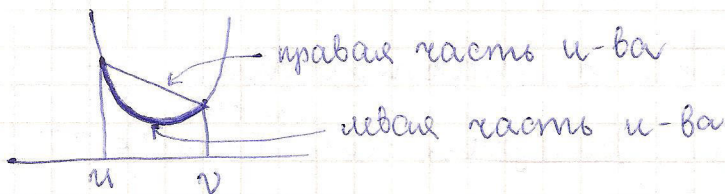 правая часть н-ва
левая часть н-ва
u v